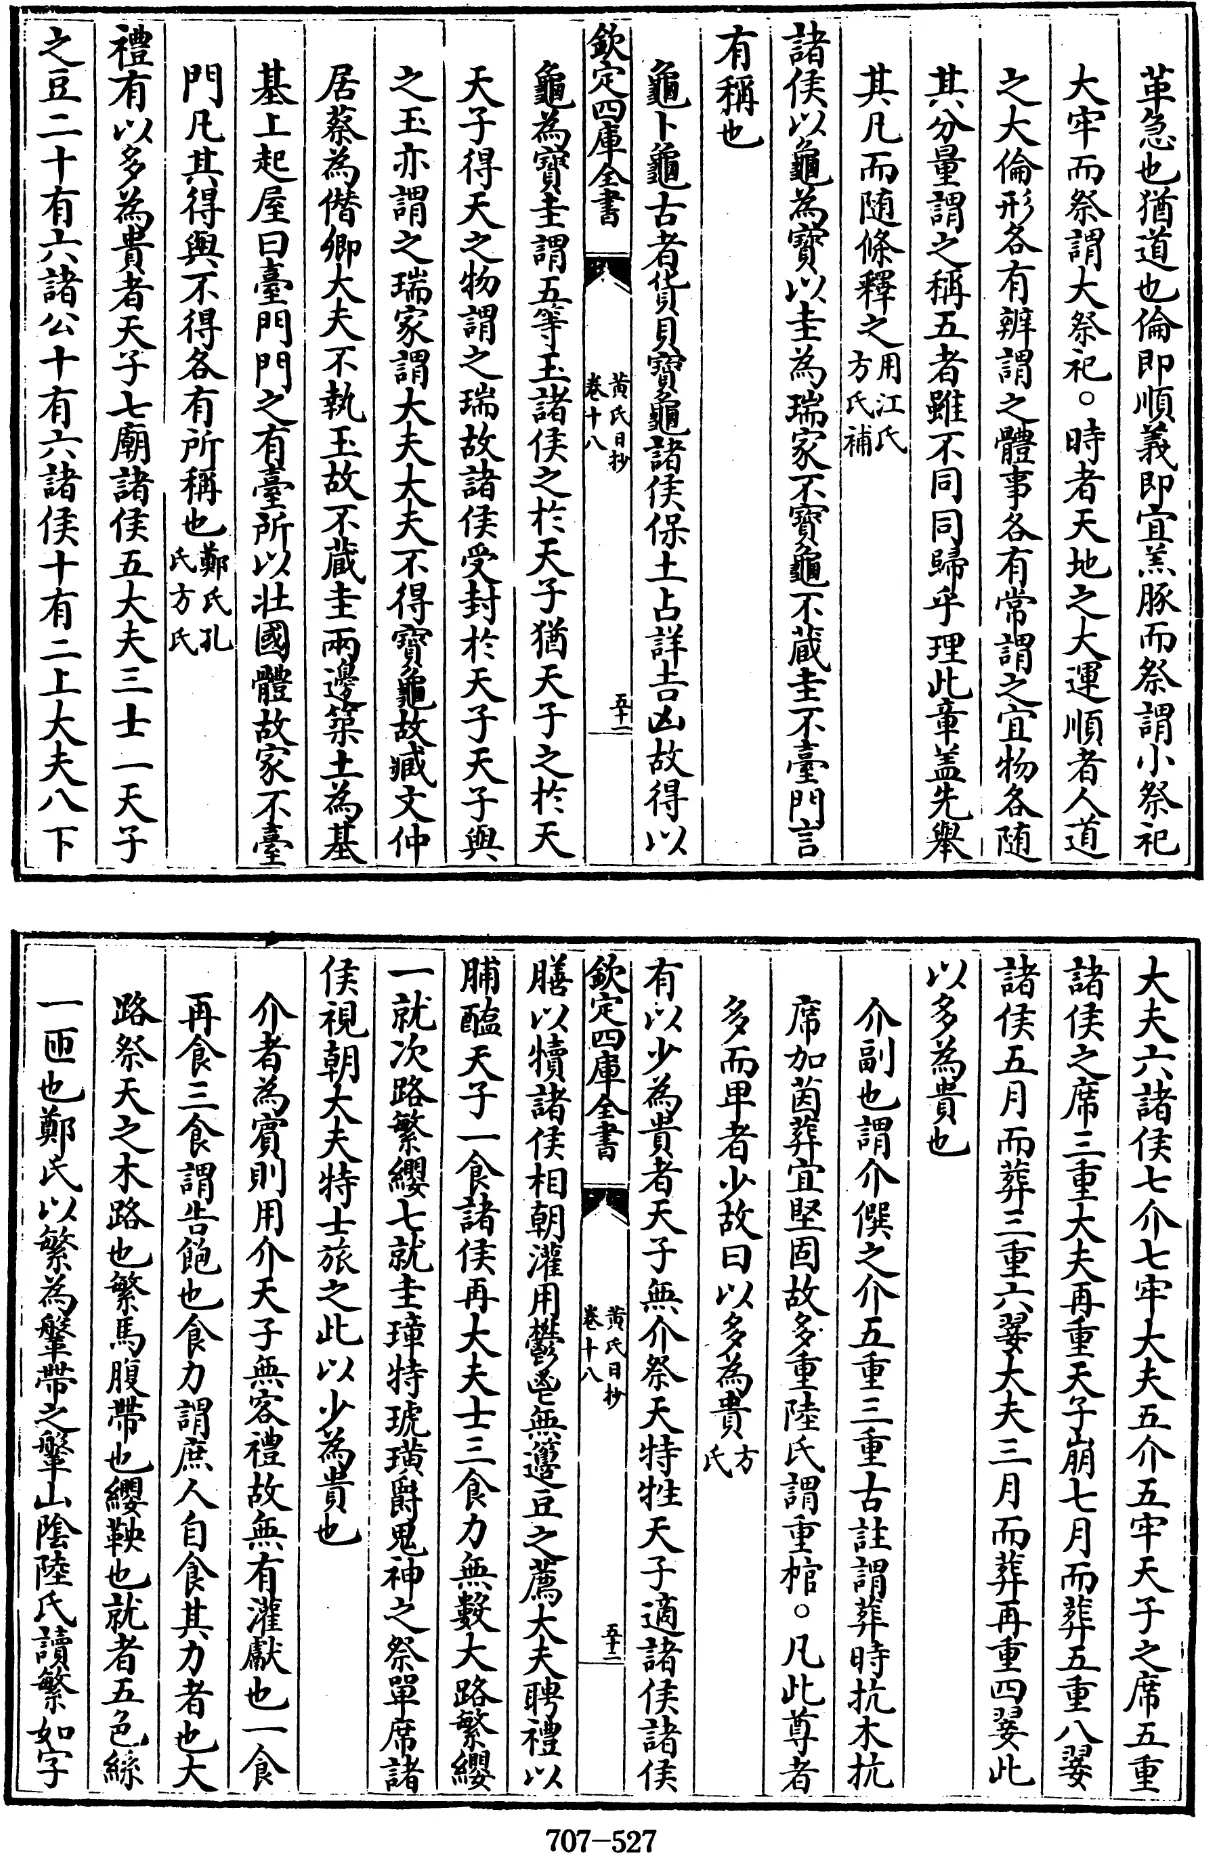 革急也猶道也倫即順義即宜羔豚而祭謂小祭祀
大牢而祭謂大祭祀○時者天地之大運順者人道
之大倫形各有辨謂之體事各有常謂之宜物各随
其分量謂之稱五者雖不同同歸乎理此章盖先舉
其凡而随條釋之用江氏方氏補
諸侯以龜為寳以圭為瑞家不寳龜不蔵圭不臺門言
有稱也
龜卜龜古者貨貝寳龜諸侯保土占詳吉凶故得以
欽定四庫全書
黄氏日抄
卷十八
五十一
龜為寳圭謂五等玉諸侯之於天子猶天子之於天
天子得天之物謂之瑞故諸侯受封於天子天子與
之玉亦謂之瑞家謂大夫大夫不得寳龜故臧文仲
居蔡為僭卿大夫不執玉故不蔵圭兩邊築土為基
基上起屋曰臺門門之有臺所以壯國體故家不臺
門凡其得與不得各有所稱也鄭氏孔氏方氏
禮有以多為貴者天子七廟諸侯五大夫三士一天子
之豆二十有六諸公十有六諸侯十有二上大夫八下
大夫六諸侯七介七牢大夫五介五牢天子之席五重
諸侯之席三重大夫再重天子崩七月而葬五重八翣
諸侯五月而葬三重六翣大夫三月而葬再重四翣此
以多為貴也
介副也謂介僎之介五重三重古註謂葬時抗木抗
席加茵葬宜堅固故多重陸氏謂重棺○凡此尊者
多而卑者少故曰以多為貴方氏
有以少為貴者天子無介祭天特牲天子適諸侯諸侯
欽定四庫全書
黄氏日抄
卷十八
五十二
膳以犢諸侯相朝灌用鬱鬯無籩豆之薦大夫聘禮以
脯醢天子一食諸侯再大夫士三食力無數大路繁纓
一就次路繁纓七就圭璋特琥璜爵鬼神之祭單席諸
侯視朝大夫特士旅之此以少為貴也
介者為賓則用介天子無客禮故無有灌獻也一食
再食三食謂告飽也食力謂庶人自食其力者也大
路祭天之木路也繁馬腹帶也纓鞅也就者五色絲
一匝也鄭氏以繁為鞶帶之鞶山陰陸氏讀繁如字
707-527